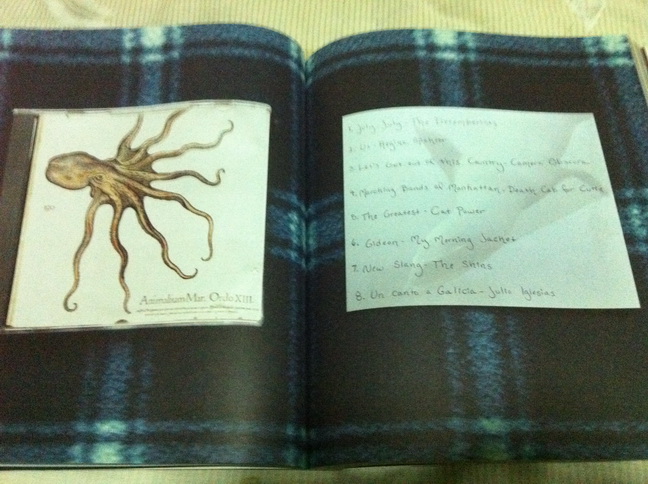 Animalium Mar. Ordo XIII
1. July, July - The Decemberists
2. Us - Regina Spektor
3. Let's Get out of this Country - Camera Obscura
4. Marching Bands of Manhattan - Death Cab for Cutie
5. The Greatest - Cat Power
6. Gideon - My Morning Jacket
7. New Slang - The Shins
8. Un canto a Galicia - Julio Iglesias